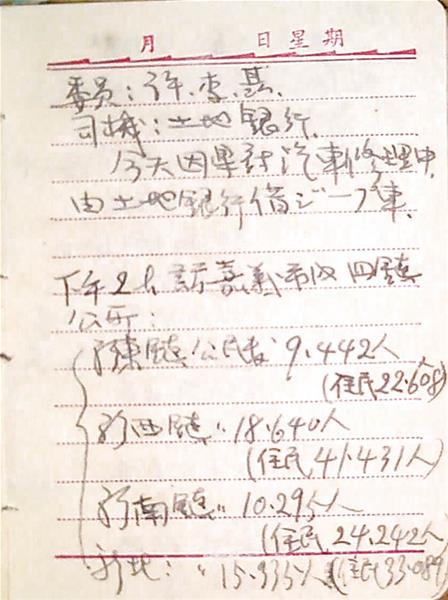 月　日 星期
委員：許、李、
司機：土地銀行.
今天因 汽車修理中,
由土地銀行借ジープ車.
下午2h 訪嘉義市內四鎮
公所：
新東鎮公民 9.442人
(住民22.608人)
新西鎮〃 18.640人
(住民41.431人)
新南鎮〃 10.295人
(住民24.242人
新北：〃 15.935人 (住民33.089